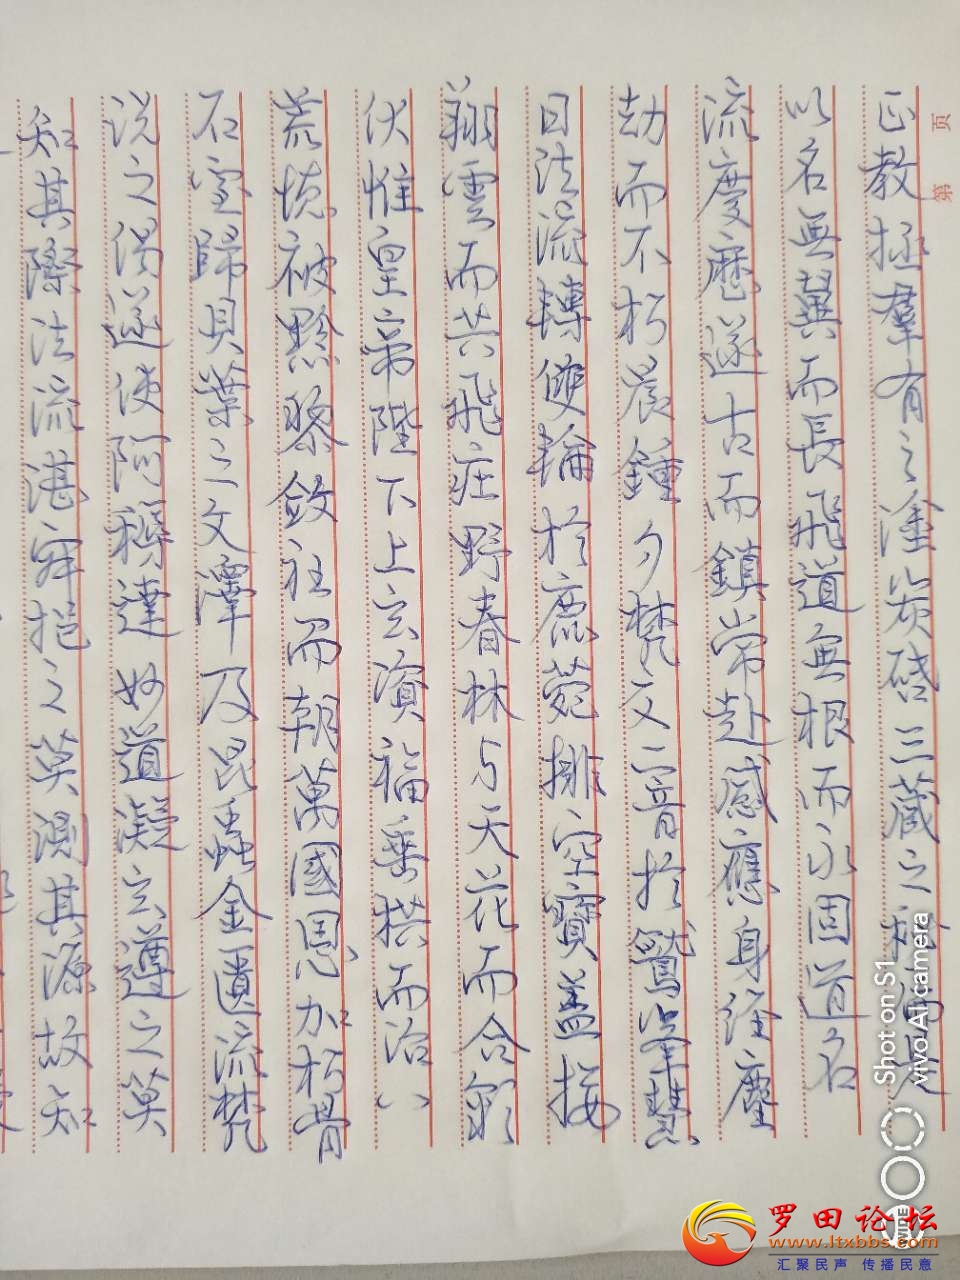 正教拯羣有之塗炭啓三藏之秘扃是
以名無翼而長飛道無根而永固道名
流慶歷遂古而鎮常赴感應身経塵
劫而不朽晨鍾夕梵交二音於鷲峯慧
日法流轉雙輪於鹿菀排空寶盖接
翔雲而共飛莊野春林与天花而合彩
伏惟皇帝陛下上玄資福垂拱而治八
荒德被黔黎斂衽而朝萬國恩加朽骨
石室歸貝葉之文澤及昆蟲金匱流梵
说之偈遂使阿耨達妙道凝玄遵之莫
知其際法流湛寂挹之莫測其源故知
第 页
Shot on S1
vivo AI camera
罗田论坛
www.ltxbbs.com
汇聚民声 传播民意